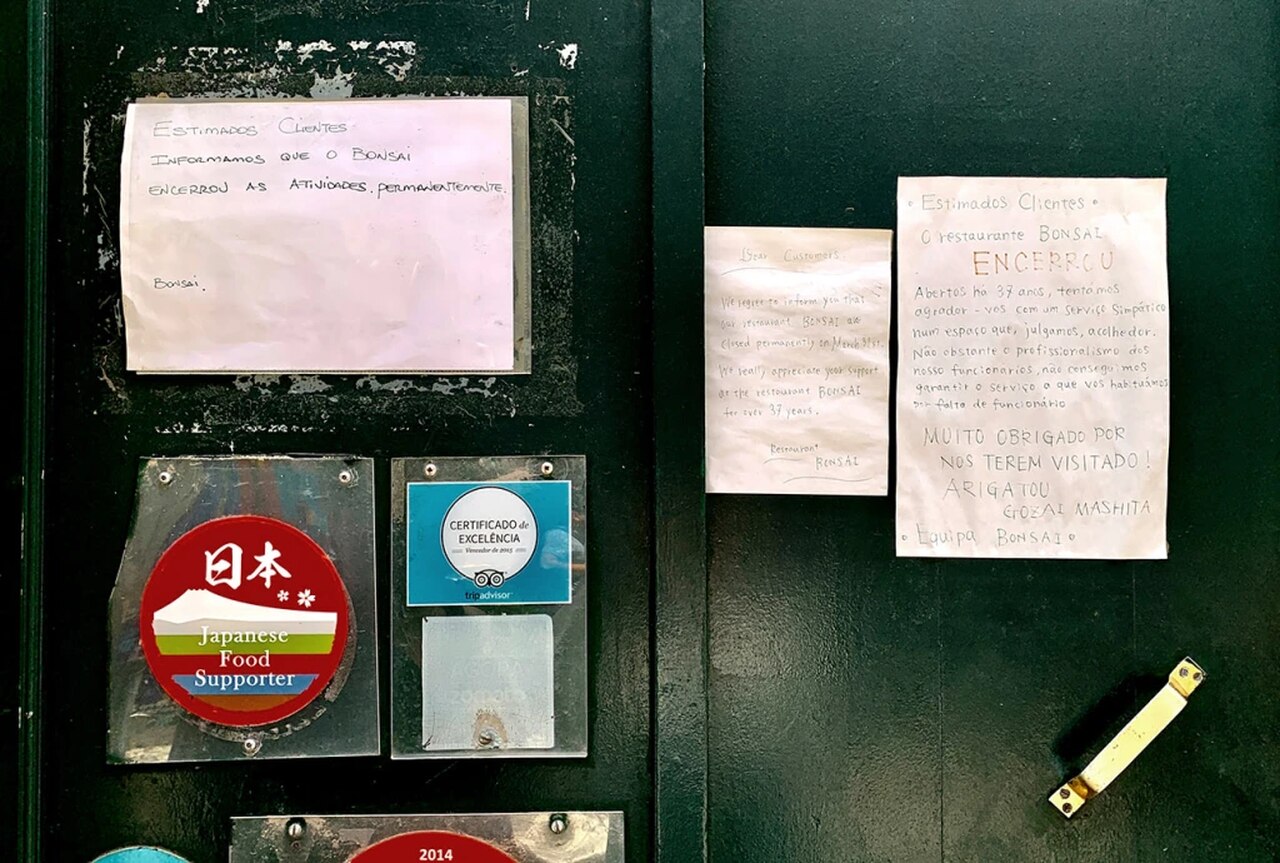 ESTIMADOS CLIENTES
INFORMAMOS QUE O BONSAI
ENCERROU AS ATIVIDADES. PERMANENTEMENTE.
BONSAI.
Dear Customers.
We regret to inform you that
our restaurant BONSAI are
closed permanently on March 31st.
We really appreciate your support
at the restaurant BONSAI
for over 37 years.
Restaurant
BONSAI
• Estimados Clientes •
O restaurante BONSAI
ENCERROU
Abertos há 37 anos, tentámos
agradar-vos com um serviço simpático
num espaço que, julgamos, acolhedor.
Não obstante o profissionalismo dos
nosso funcionários, não conseguimos
garantir o serviço a que vos habituámos
por falta de funcionário
MUITO OBRIGADO POR
NOS TEREM VISITADO!
ARIGATOU
GOZAI MASHITA
• Equipa BONSAI •
日本
Japanese
Food
Supporter
CERTIFICADO de
EXCELÊNCIA
Vencedor de 2015
tripadvisor
zomato
2014